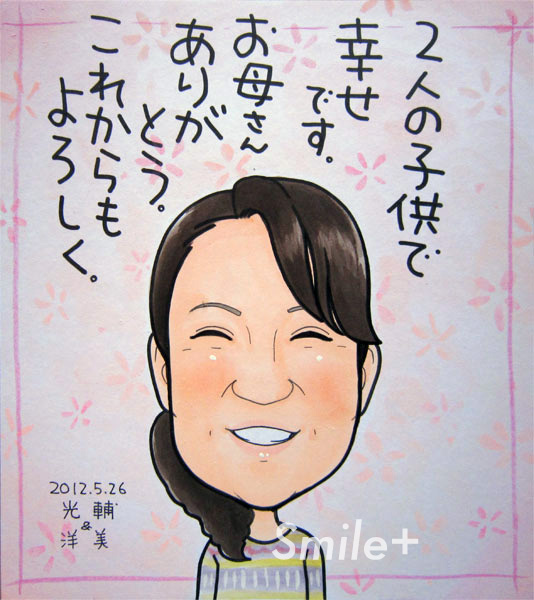 2人の子供で
幸せ
です。
お母さん
ありが
とう。
これからも
よろしく。
2012.5.26
光輔
&
洋美
Smile+